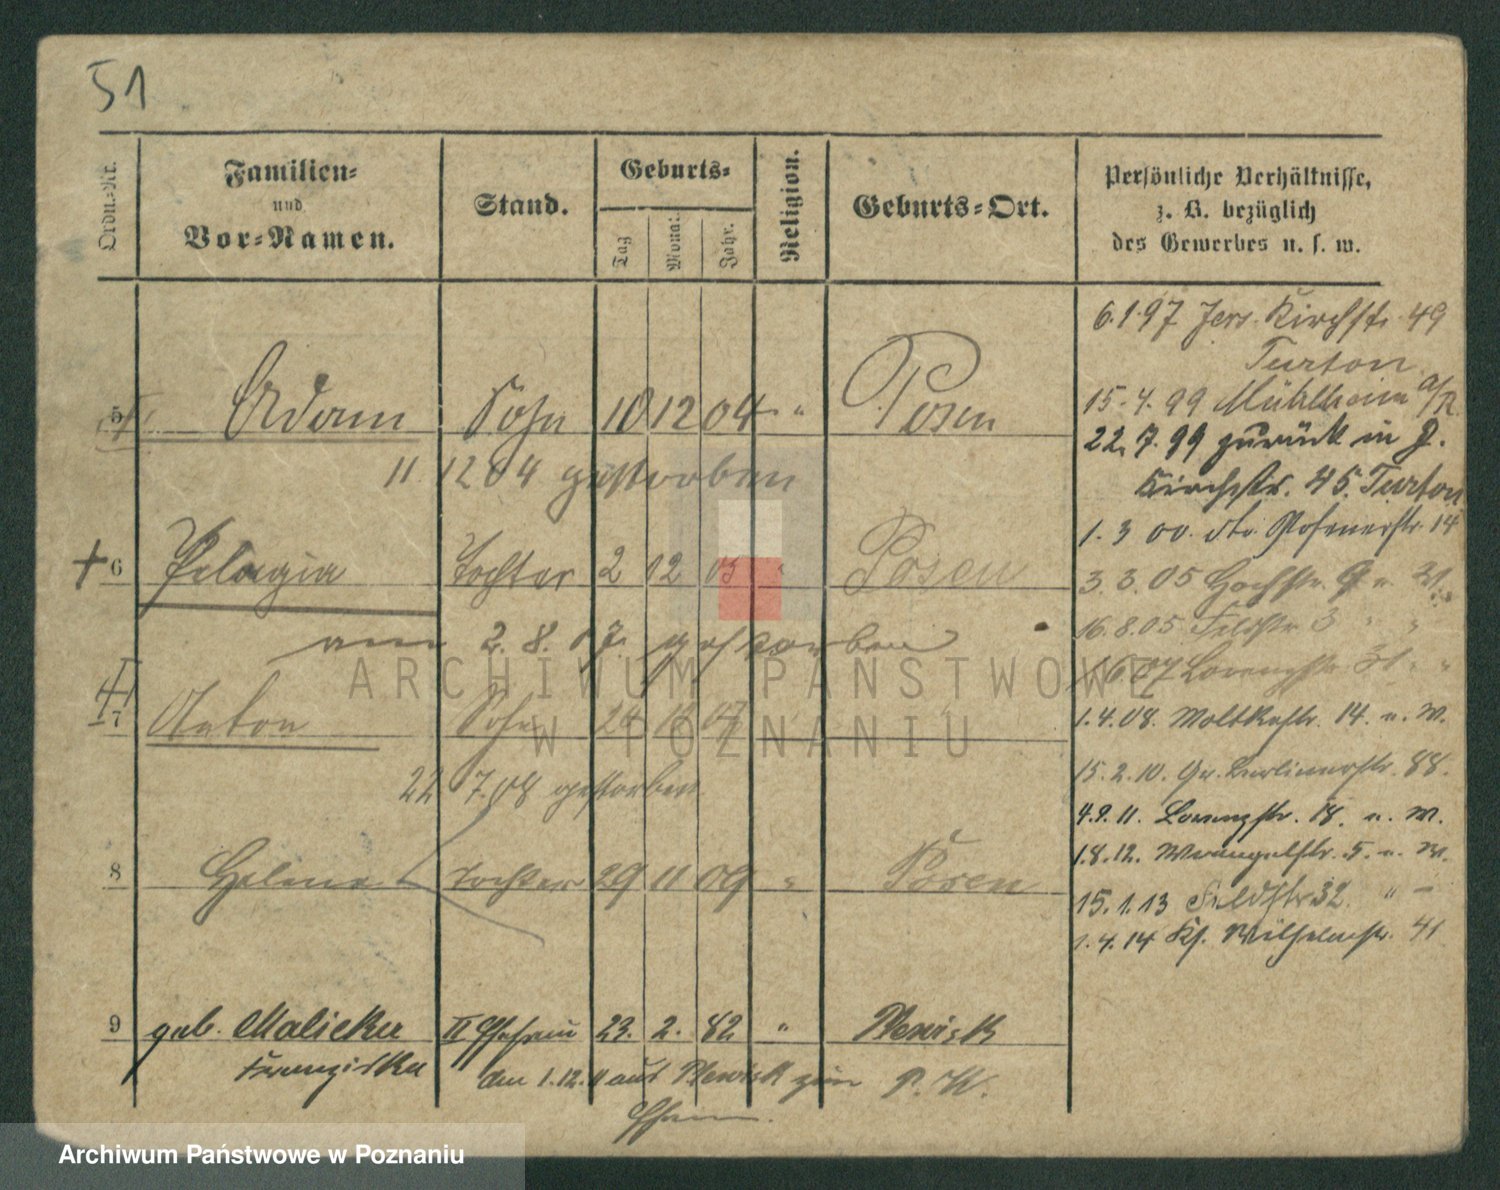 51
Ordn.-Nr.
Familien-
und
Vor-Namen.
Stand.
Geburts-
Tag
Monat
Jahr.
Religion.
Geburts-Ort.
Persönliche Verhältnisse,
z. B. bezüglich
des Gewerbes u. s. w.
5 Adam Sohn 10 12 04 " Posen
11 12 04 gestorben
6 Pelagia Tochter 2 12 05 " Posen
am 2. 8. 07. gestorben
7 Anton Sohn 07 "
22 7.08 gestorben
8 Helena Tochter 29 11 09 " Posen
9 geb. Malicka II Ehefrau 23. 2. 82 " Plewisk
Franziska
am 1.12.11 aus Plewisk zum P. K.
6.1.97 Jers. Kirchstr. 49
Turton
15.4.99 Mühlheim a/R.
22.7.99 zurück in J.
Kirchstr. 45. Turton
1.3 00. dto. Posenerstr. 14
3.3.05 Hochstr. 9
16.8.05 Feldstr 3 " "
07 Lorenzstr. 31 " "
1.4.08. Moltkestr. 14. u. W.
15.2.10. Gr. Berlinerstr. 88.
4.9.11. Lorenzstr. 18. u. W.
1.8.12. Wrangelstr. 5. u. W.
15.1.13 Feldstr 32. " –
1.4.14 Ks. Wilhelmstr. 41
ARCHIWUM PAŃSTWOWE
W POZNANIU
Archiwum Państwowe w Poznaniu